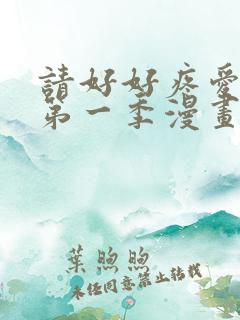 請好好疼愛
第一季漫畫
葉煦煦
未经同意禁止转载